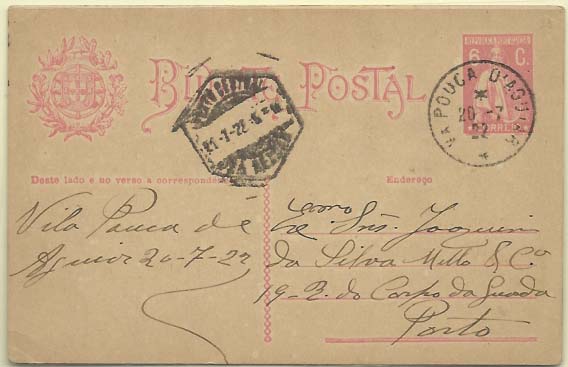 BILHETE POSTAL
REPUBLICA PORTUGUESA
6 C.
CORREIO
VA POUCA D'AGUIAR
20-7
22
21-7-22
Deste lado e no verso a correspondencia
Endereço
Vila Pouca de
Aguiar 20-7-22
Exmo Snr. Joaquim
da Silva Mello & Co
19-R. do Corpo da Guarda
Porto